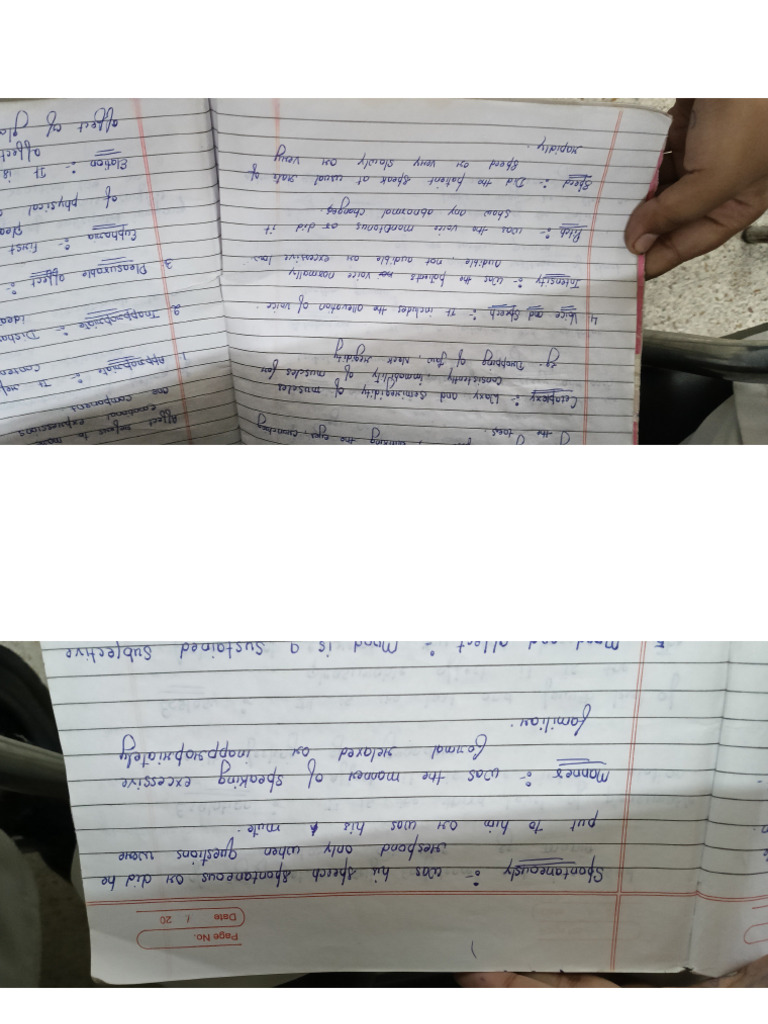 , winking the eyes, crunching
the toes.
Cetaplexy :- Waxy and semiregidity of muscles
consistently immobility of muscles for
eg. Dropping of jaw, neck regidity
4. Voice and Speech :- It includes the alteration of voice.
Intensity :- Was the patients voice normally
audible, not audible or excessive low
Pitch :- was the voice monotonus or did it
show any abnormal changes
Speed :- Did the patient speak at usual rate of
speed or very slowly or very
rapidly.
Affect refers to
emotional expressions
are components
1. Appropriate :- It
2. Inappropriate :- Dishar
idea
3. Pleasurable affect :-
Euphoria :- First
of physical
Elation :- It is
affect
affect of
Page No.
Date / 20
Spontaneously :- was his speech spontaneous or did he
respond only when questions were
put to him or was his mute.
Manner :- was the manner of speaking excessive
formal relaxed or inappropriately
familiar.
5 Mood and affect :- Mood is a sustained subjective